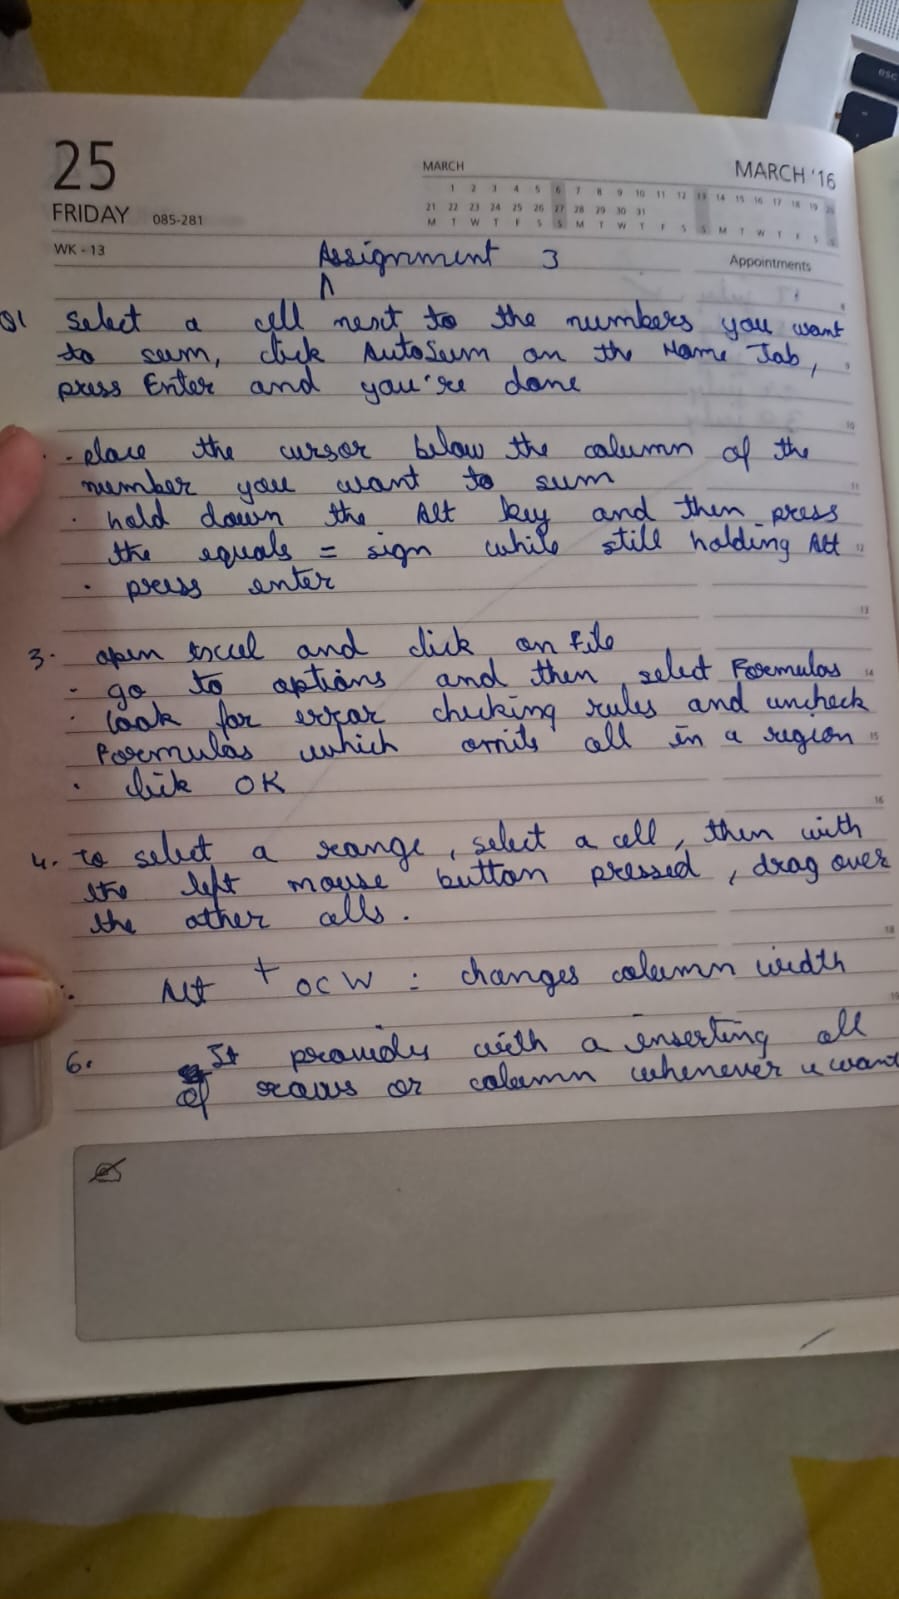 esc
25
MARCH
MARCH '16
1 2 3 4 5 6 7 8 9 10 11 12 13 14 15 16 17 18 19 20
21 22 23 24 25 26 27 28 29 30 31
M T W T F S S M T W T F S S M T W T F S S
FRIDAY 085-281
WK - 13
Appointments
Assignment 3
Q1 Select a cell next to the numbers you want
to sum, click AutoSum on the Home Tab,
press Enter and you're done
place the cursor below the column of the
number you want to sum
· hold down the Alt key and then press
the equals = sign while still holding Alt
· press enter
3. open excel and click on file
· go to options and then select Formulas
· look for error checking rules and uncheck
Formulas which omits all in a region
· click OK
4. to select a range, select a cell, then with
the left mouse button pressed, drag over
the other cells.
Alt + OCW : changes column width
6. It provides with a inserting all
of rows or column whenever u want
9
10
11
12
13
14
15
16
18